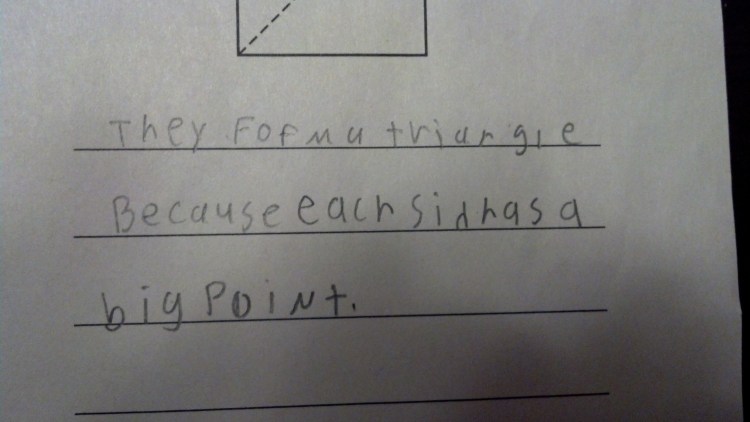 They Form a triangle
Because each sid has a
big Point.